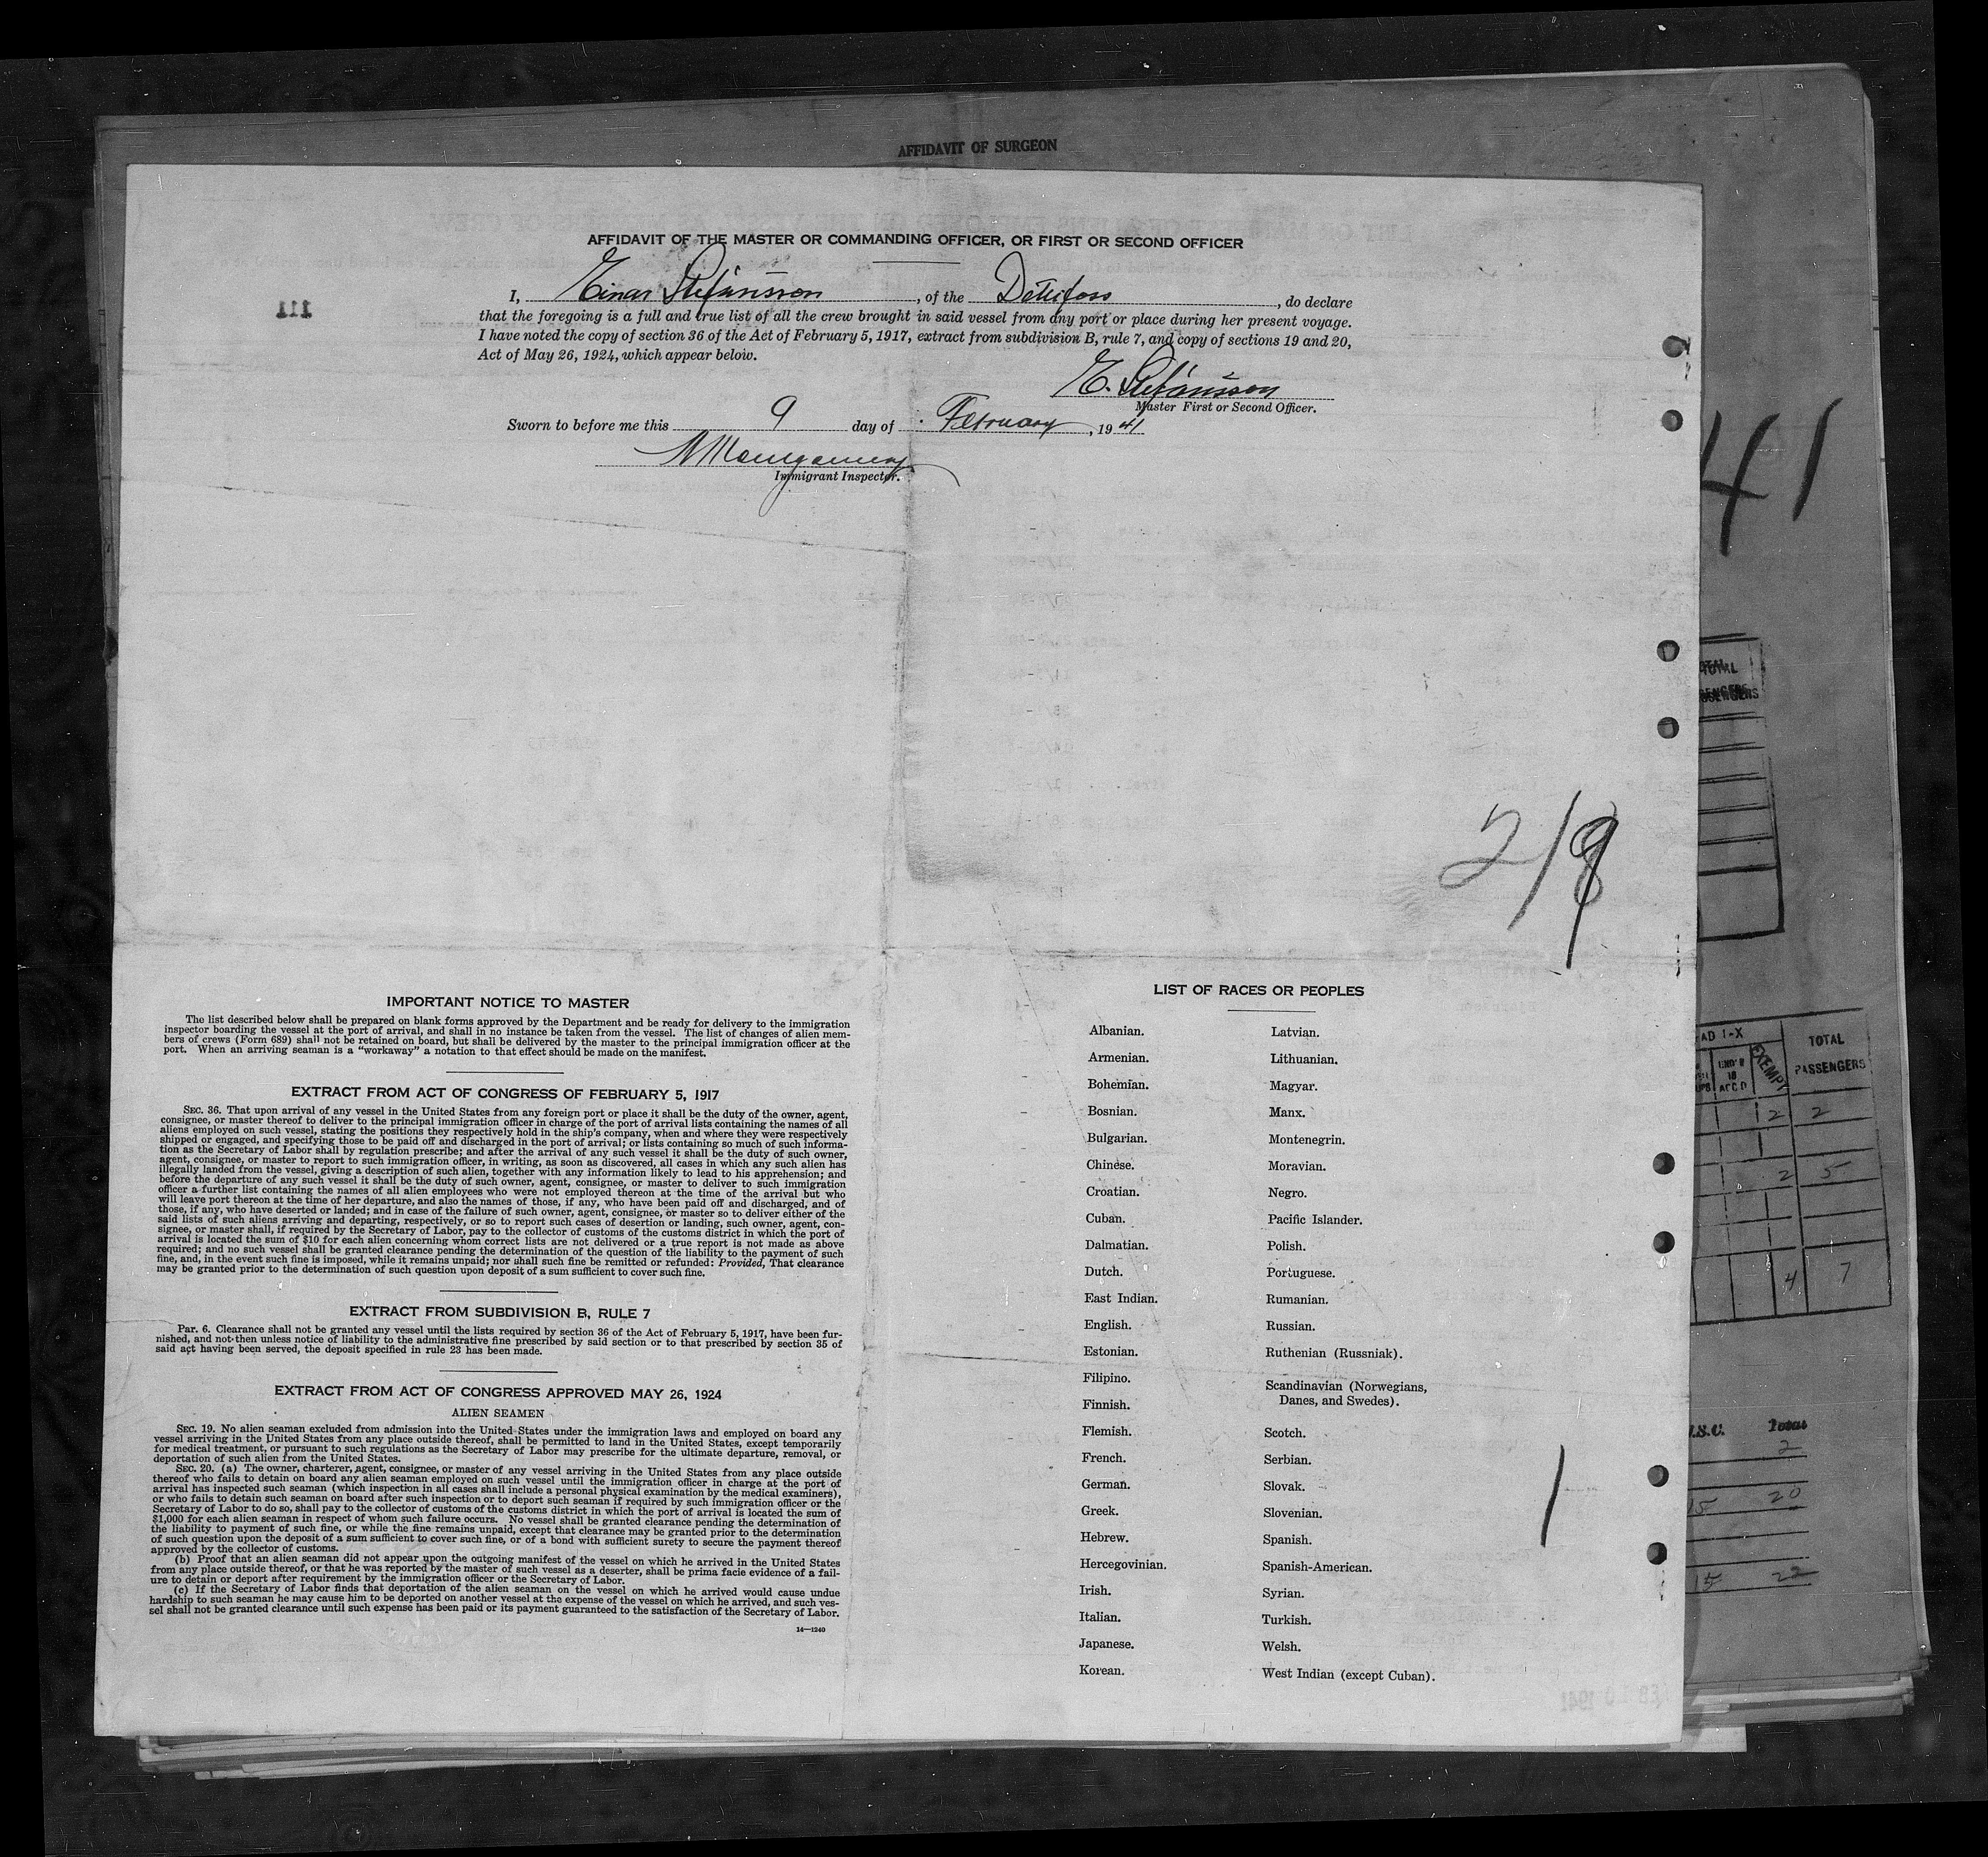 AFFIDAVIT OF SURGEON
AFFIDAVIT OF THE MASTER OR COMMANDING OFFICER, OR FIRST OR SECOND OFFICER
I, Einar Stefánsson, of the Dettifoss, do declare
that the foregoing is a full and true list of all the crew brought in said vessel from any port or place during her present voyage.
I have noted the copy of section 36 of the Act of February 5, 1917, extract from subdivision B, rule 7, and copy of sections 19 and 20,
Act of May 26, 1924, which appear below.
E. Stefánsson
Master First or Second Officer.
Sworn to before me this 9 day of February, 1941
Montgomery
Immigrant Inspector.
111
41
TOTAL
2/9
IMPORTANT NOTICE TO MASTER
The list described below shall be prepared on blank forms approved by the Department and be ready for delivery to the immigration
inspector boarding the vessel at the port of arrival, and shall in no instance be taken from the vessel. The list of changes of alien mem-
bers of crews (Form 689) shall not be retained on board, but shall be delivered by the master to the principal immigration officer at the
port. When an arriving seaman is a “workaway” a notation to that effect should be made on the manifest.
EXTRACT FROM ACT OF CONGRESS OF FEBRUARY 5, 1917
SEC. 36. That upon arrival of any vessel in the United States from any foreign port or place it shall be the duty of the owner, agent,
consignee, or master thereof to deliver to the principal immigration officer in charge of the port of arrival lists containing the names of all
aliens employed on such vessel, stating the positions they respectively hold in the ship's company, when and where they were respectively
shipped or engaged, and specifying those to be paid off and discharged in the port of arrival; or lists containing so much of such informa-
tion as the Secretary of Labor shall by regulation prescribe; and after the arrival of any such vessel it shall be the duty of such owner,
agent, consignee, or master to report to such immigration officer, in writing, as soon as discovered, all cases in which any such alien has
illegally landed from the vessel, giving a description of such alien, together with any information likely to lead to his apprehension; and
before the departure of any such vessel it shall be the duty of such owner, agent, consignee, or master to deliver to such immigration
officer a further list containing the names of all alien employees who were not employed thereon at the time of the arrival but who
will leave port thereon at the time of her departure, and also the names of those, if any, who have been paid off and discharged, and of
those, if any, who have deserted or landed; and in case of the failure of such owner, agent, consignee, or master so to deliver either of the
said lists of such aliens arriving and departing, respectively, or so to report such cases of desertion or landing, such owner, agent, con-
signee, or master shall, if required by the Secretary of Labor, pay to the collector of customs of the customs district in which the port of
arrival is located the sum of $10 for each alien concerning whom correct lists are not delivered or a true report is not made as above
required; and no such vessel shall be granted clearance pending the determination of the question of the liability to the payment of such
fine, and, in the event such fine is imposed, while it remains unpaid; nor shall such fine be remitted or refunded: Provided, That clearance
may be granted prior to the determination of such question upon deposit of a sum sufficient to cover such fine.
EXTRACT FROM SUBDIVISION B, RULE 7
Par. 6. Clearance shall not be granted any vessel until the lists required by section 36 of the Act of February 5, 1917, have been fur-
nished, and not then unless notice of liability to the administrative fine prescribed by said section or to that prescribed by section 35 of
said act having been served, the deposit specified in rule 23 has been made.
EXTRACT FROM ACT OF CONGRESS APPROVED MAY 26, 1924
ALIEN SEAMEN
SEC. 19. No alien seaman excluded from admission into the United States under the immigration laws and employed on board any
vessel arriving in the United States from any place outside thereof, shall be permitted to land in the United States, except temporarily
for medical treatment, or pursuant to such regulations as the Secretary of Labor may prescribe for the ultimate departure, removal, or
deportation of such alien from the United States.
SEC. 20. (a) The owner, charterer, agent, consignee, or master of any vessel arriving in the United States from any place outside
thereof who fails to detain on board any alien seaman employed on such vessel until the immigration officer in charge at the port of
arrival has inspected such seaman (which inspection in all cases shall include a personal physical examination by the medical examiners),
or who fails to detain such seaman on board after such inspection or to deport such seaman if required by such immigration officer or the
Secretary of Labor to do so, shall pay to the collector of customs of the customs district in which the port of arrival is located the sum of
$1,000 for each alien seaman in respect of whom such failure occurs. No vessel shall be granted clearance pending the determination of
the liability to payment of such fine, or while the fine remains unpaid, except that clearance may be granted prior to the determination
of such question upon the deposit of a sum sufficient to cover such fine, or of a bond with sufficient surety to secure the payment thereof
approved by the collector of customs.
(b) Proof that an alien seaman did not appear upon the outgoing manifest of the vessel on which he arrived in the United States
from any place outside thereof, or that he was reported by the master of such vessel as a deserter, shall be prima facie evidence of a fail-
ure to detain or deport after requirement by the immigration officer or the Secretary of Labor.
(c) If the Secretary of Labor finds that deportation of the alien seaman on the vessel on which he arrived would cause undue
hardship to such seaman he may cause him to be deported on another vessel at the expense of the vessel on which he arrived, and such ves-
sel shall not be granted clearance until such expense has been paid or its payment guaranteed to the satisfaction of the Secretary of Labor.
14—1240
LIST OF RACES OR PEOPLES
Albanian.
Armenian.
Bohemian.
Bosnian.
Bulgarian.
Chinese.
Croatian.
Cuban.
Dalmatian.
Dutch.
East Indian.
English.
Estonian.
Filipino.
Finnish.
Flemish.
French.
German.
Greek.
Hebrew.
Hercegovinian.
Irish.
Italian.
Japanese.
Korean.
Latvian.
Lithuanian.
Magyar.
Manx.
Montenegrin.
Moravian.
Negro.
Pacific Islander.
Polish.
Portuguese.
Rumanian.
Russian.
Ruthenian (Russniak).
Scandinavian (Norwegians,
Danes, and Swedes).
Scotch.
Serbian.
Slovak.
Slovenian.
Spanish.
Spanish-American.
Syrian.
Turkish.
Welsh.
West Indian (except Cuban).
EXEMPT
TOTAL
PASSENGERS
2 2
2 5
4 7
Total
2
15 20
15 22